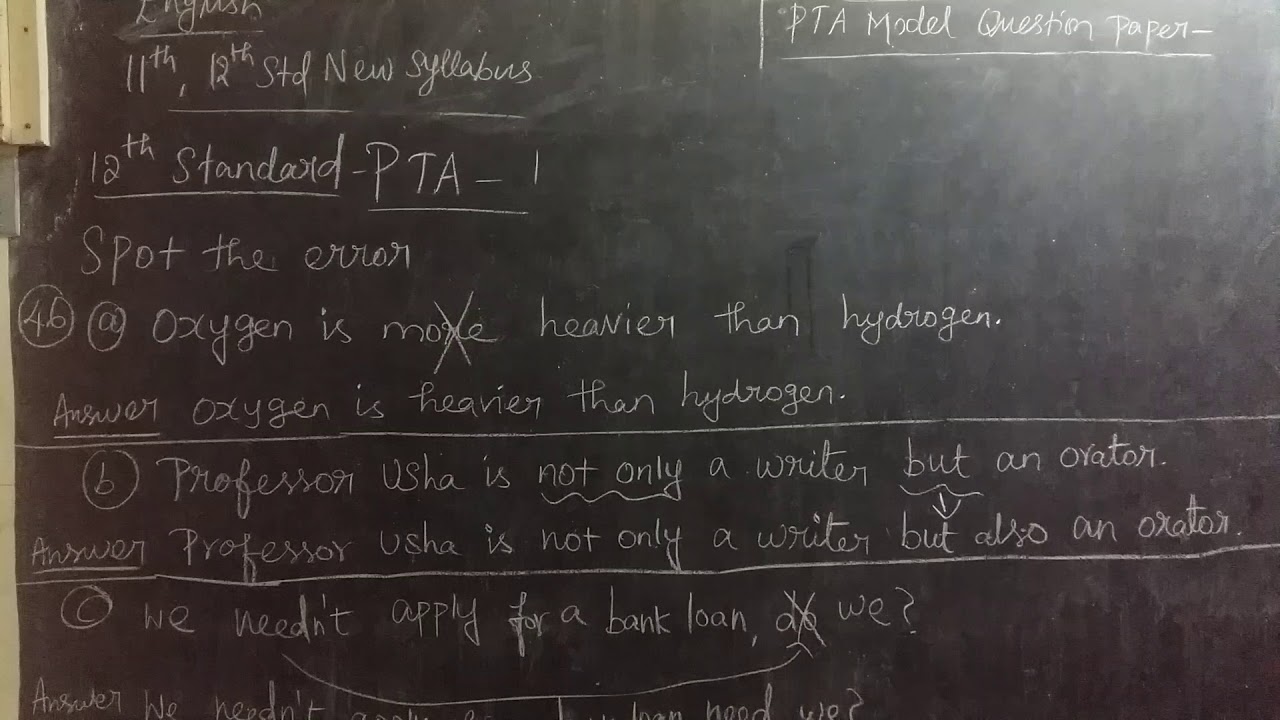 English
PTA Model Question Paper-
11th, 12th Std New Syllabus
12th Standard-PTA-1
Spot the error
46 a Oxygen is more heavier than hydrogen.
Answer Oxygen is heavier than hydrogen.
b Professor Usha is not only a writer but an orator.
Answer Professor Usha is not only a writer but also an orator.
c We needn't apply for a bank loan, do we?
Answer We needn't apply loan need we?